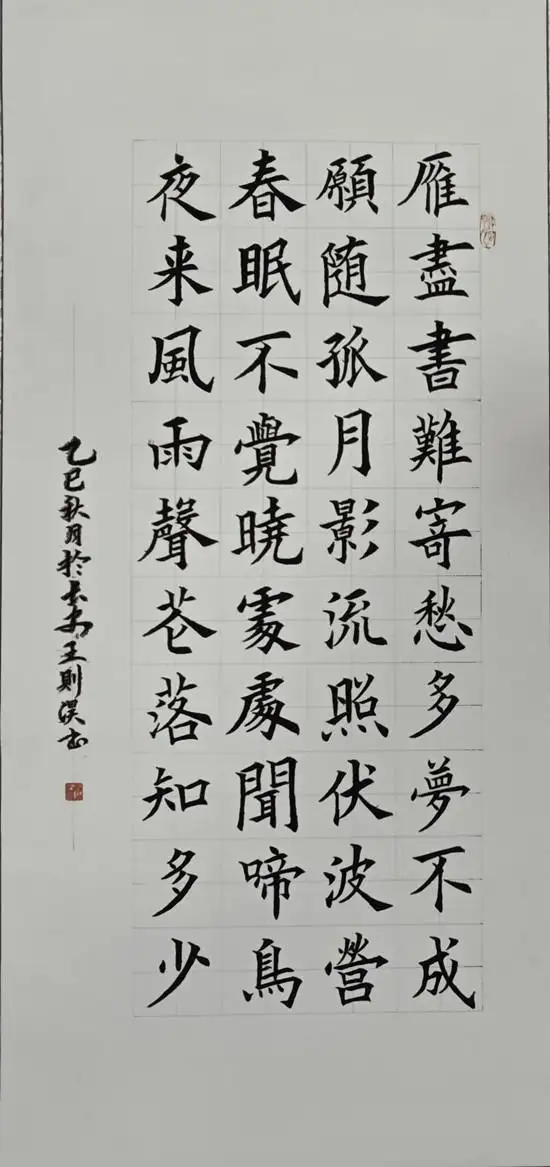 雁盡書難寄愁多夢不成
願随孤月影流照伏波營
春眠不覺曉處處聞啼鳥
夜来風雨聲花落知多少
乙巳秋月於长安王则溪书